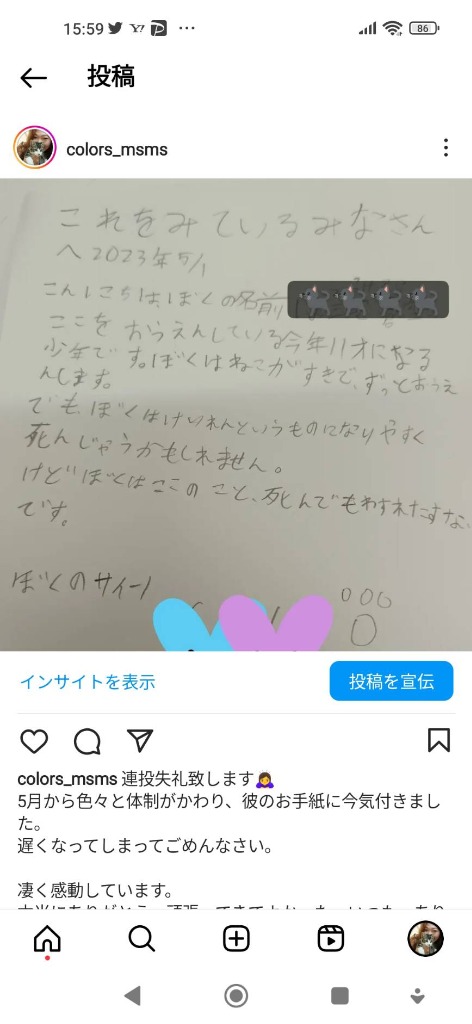 15:59
86
投稿
colors_msms
これをみているみなさん
へ2023年5/1
こんにちは、ぼくの名前
ここをおうえんしている今年11才になる
少年です。ぼくはねこがすきで、ずっとおうえ
んします。
でも、ぼくはけいれんというものになりやすく
死んじゃうかもしれません。
けどぼくはここのこと、死んでもわすれたすな、
です。
ぼくのサイン
インサイトを表示
投稿を宣伝
colors_msms 連投失礼致します🙇‍♀️
5月から色々と体制がかわり、彼のお手紙に今気付きまし
た。
遅くなってしまってごめんなさい。
凄く感動しています。